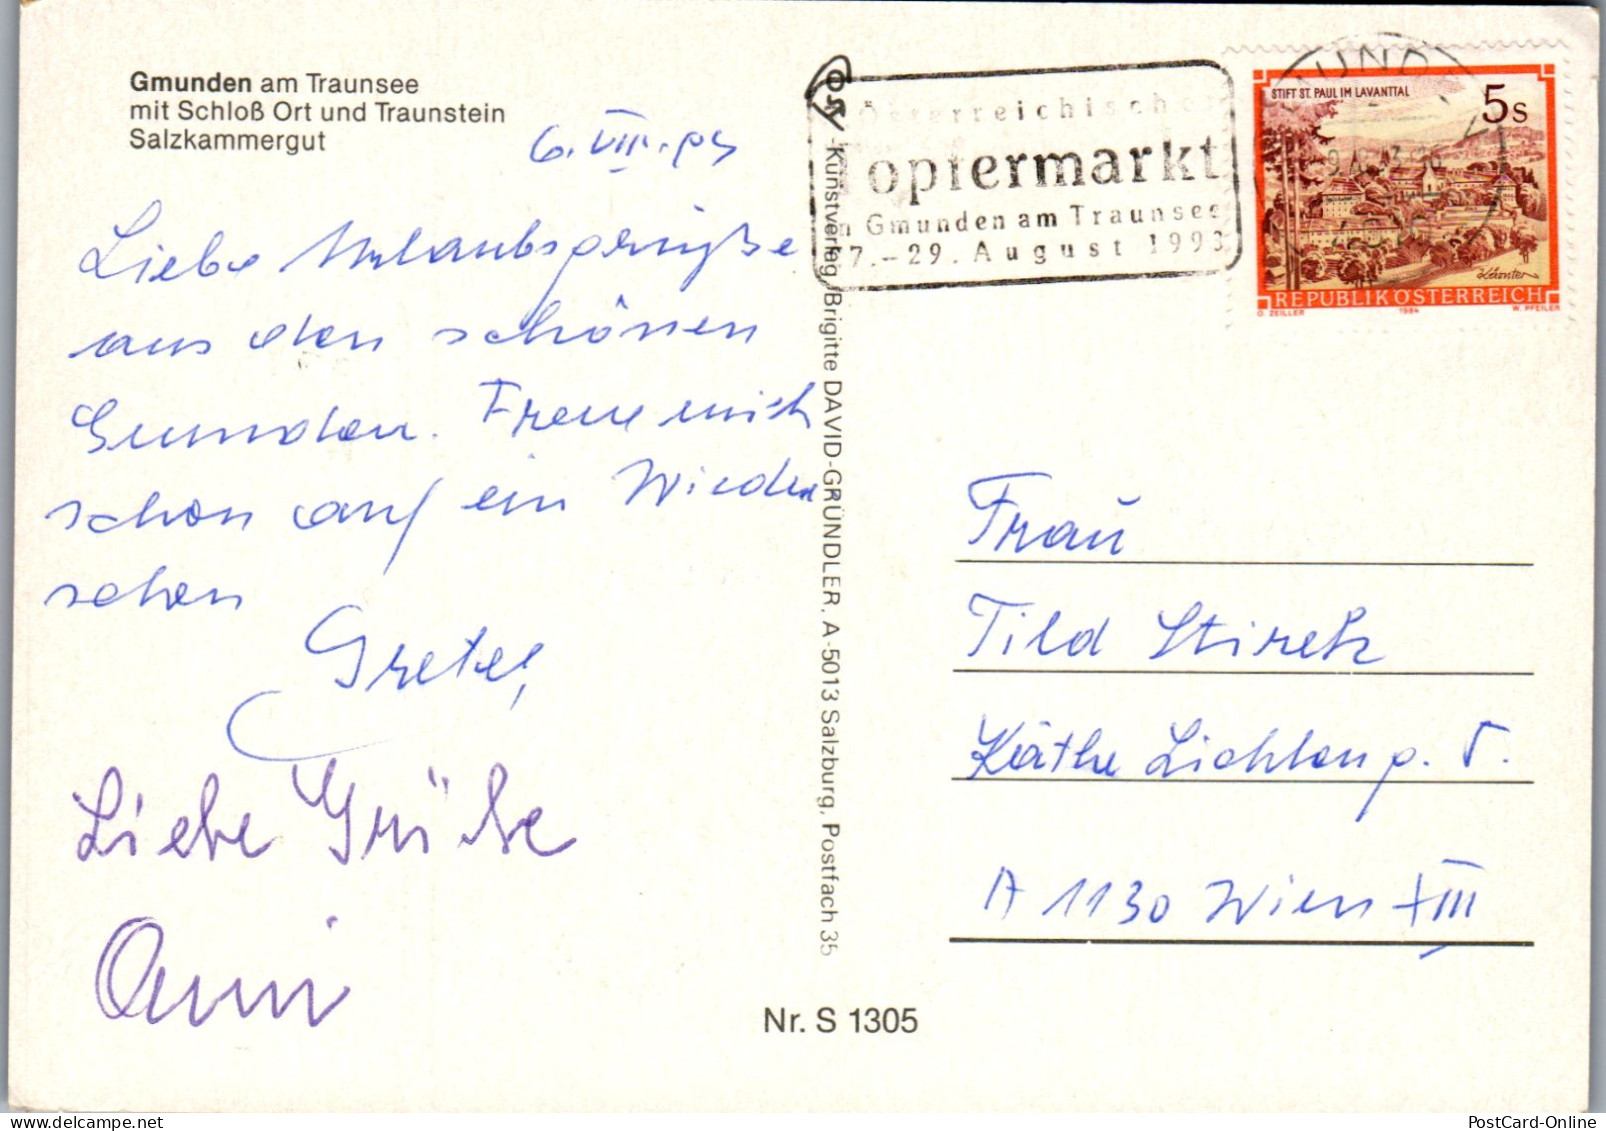 Gmunden am Traunsee
mit Schloß Ort und Traunstein
Salzkammergut
6. VIII. 93
Liebe Urlaubsgrüße
aus den schönen
Gmunden. Freue mich
schon auf ein Wieder
sehen
Gretel,
Liebe Grüße
Anni
Kunstverlag Brigitte DAVID-GRÜNDLER, A-5013 Salzburg, Postfach 35
Nr. S 1305
Österreichischer
Töpfermarkt
in Gmunden am Traunsee
27.-29. August 1993
STIFT ST. PAUL IM LAVANTTAL
5s
Kärnten
REPUBLIK ÖSTERREICH
O. ZEILLER 1984 W. PFEILER
Frau
Tild
Käthe
A 1130 Wien XIII
PostCard-Online